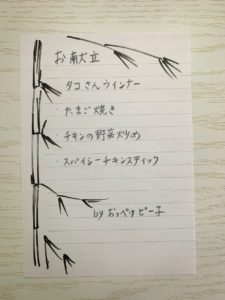 お献立
・タコさんウインナー
・たまご焼き
・チキンの野菜炒め
・スパイシーチキンスティック
by おっぺけピー子